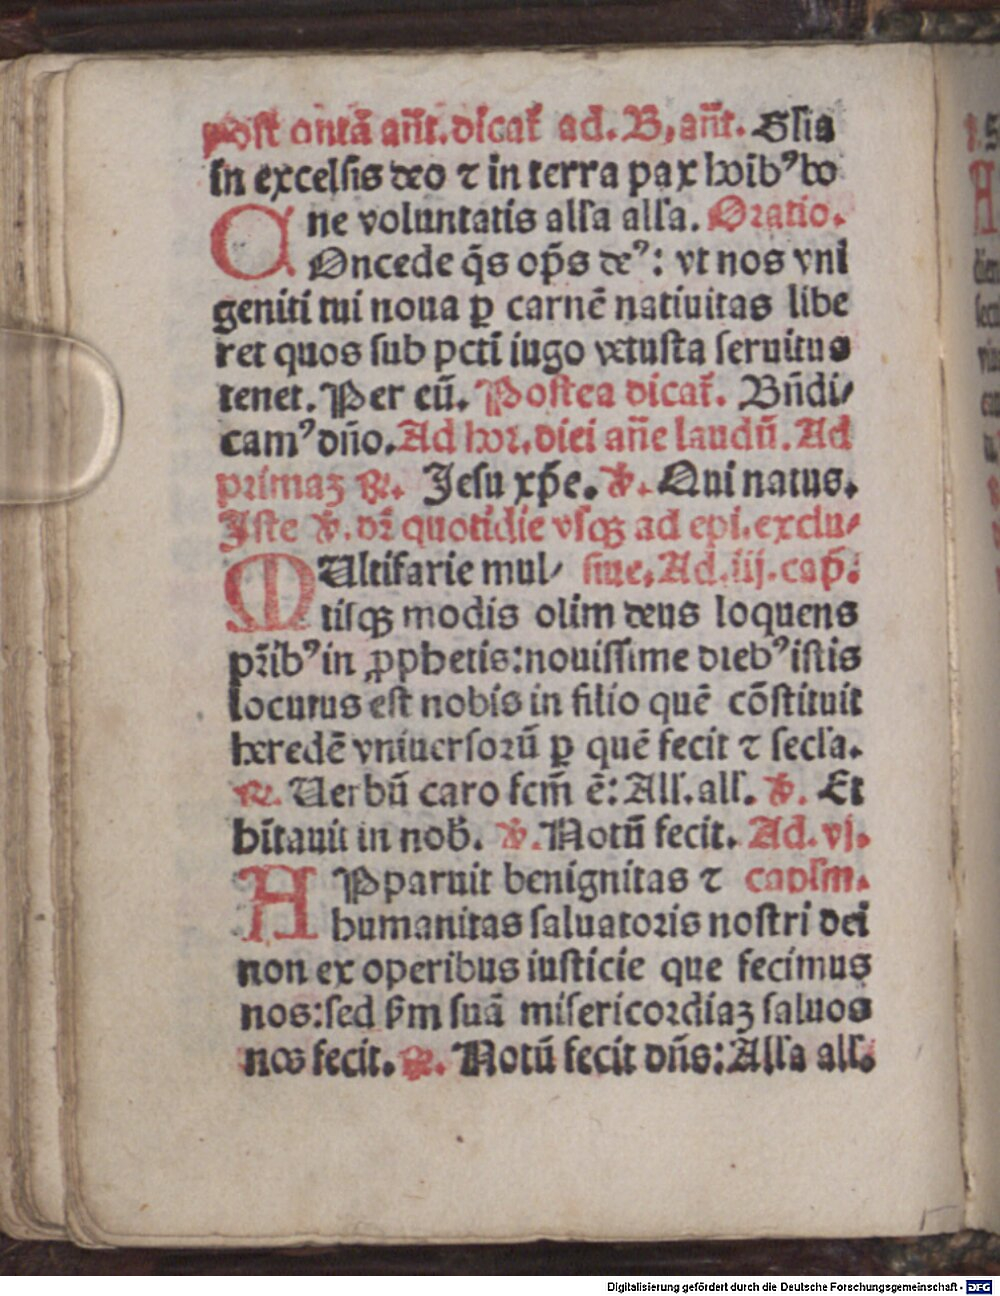 post oīntā añt. dicat̄ ad. B, añt. Glia
in excelsis deo ⁊ in terra pax hoīb⁹ bo
ne voluntatis alľa alľa. Oratio.
COncede q̄s op̄s de⁹: vt nos vni
geniti tui noua ꝑ carnē natiuitas libe
ret quos sub pctī iugo vetusta seruitus
tenet. Per eū. Postea dicat̄. Bn̄di/
cam⁹ dn̄o. Ad hor. diei an̄e laudū. Ad
primaꝫ ℟. Jesu xp̄e. ℣. Qui natus.
Iste ℣. dr̄ quotidie vsqꝫ ad epi. exclu/
MUltifarie mul/ siue. Ad. iij. cap̄.
tisqꝫ modis olim deus loquens
pr̄ib⁹ in ꝓphetis: nouissime dieb⁹ istis
locutus est nobis in filio quē cōstituit
heredē vniuersorū ꝑ quē fecit ⁊ secľa.
℟. Uerbū caro fcm̄ ē: Allľ. alľ. ℣. Et
hītauit in nob̄. ℣. Notū fecit. Ad. vj.
APparuit benignitas ⁊ capľm.
humanitas saluatoris nostri dei
non ex operibus iusticie que fecimus
nos: sed s̄m suā misericordiaꝫ saluos
nos fecit. ℟. Notū fecit dn̄s: Alľa alľ.
Digitalisierung gefördert durch die Deutsche Forschungsgemeinschaft - DFG